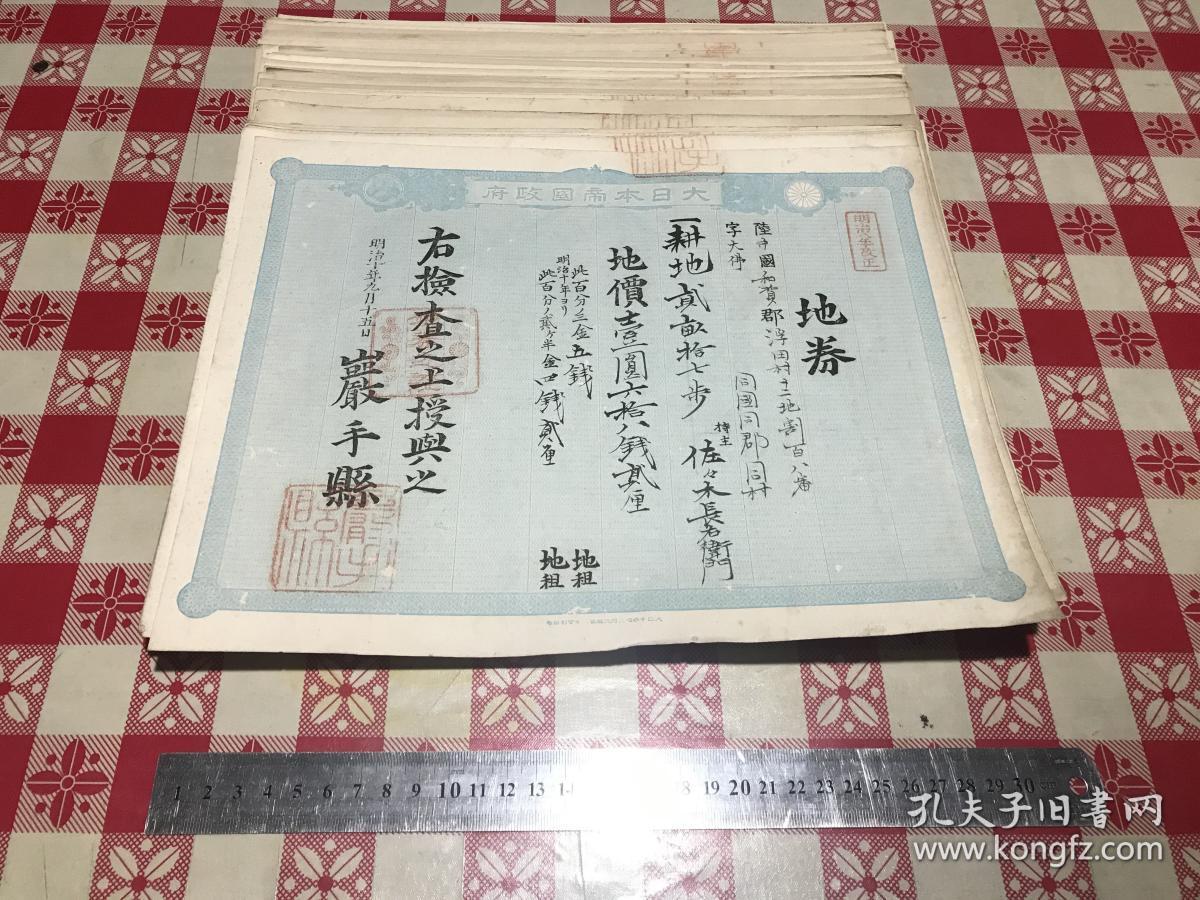 大日本帝國政府
明治九年改正
地券
陸中國和賀郡浮田村十二地割百八番
字大沸
同國同郡同村
一耕地貳畝拾七歩
持主 佐々木長右衛門
地價壹圓六拾八錢貳厘
此百分ノ三金五錢 地租
明治十年ヨリ
此百分ノ貳ヶ半金四錢貳厘 地租
右檢査之上授與之
明治十年九月十五日
巖手縣
1 2 3 4 5 6 7 8 9 10 11 12 13 14 18 19 20 21 22 23 24 25 26 27 28 29 30
孔夫子旧書网
www.kongfz.com